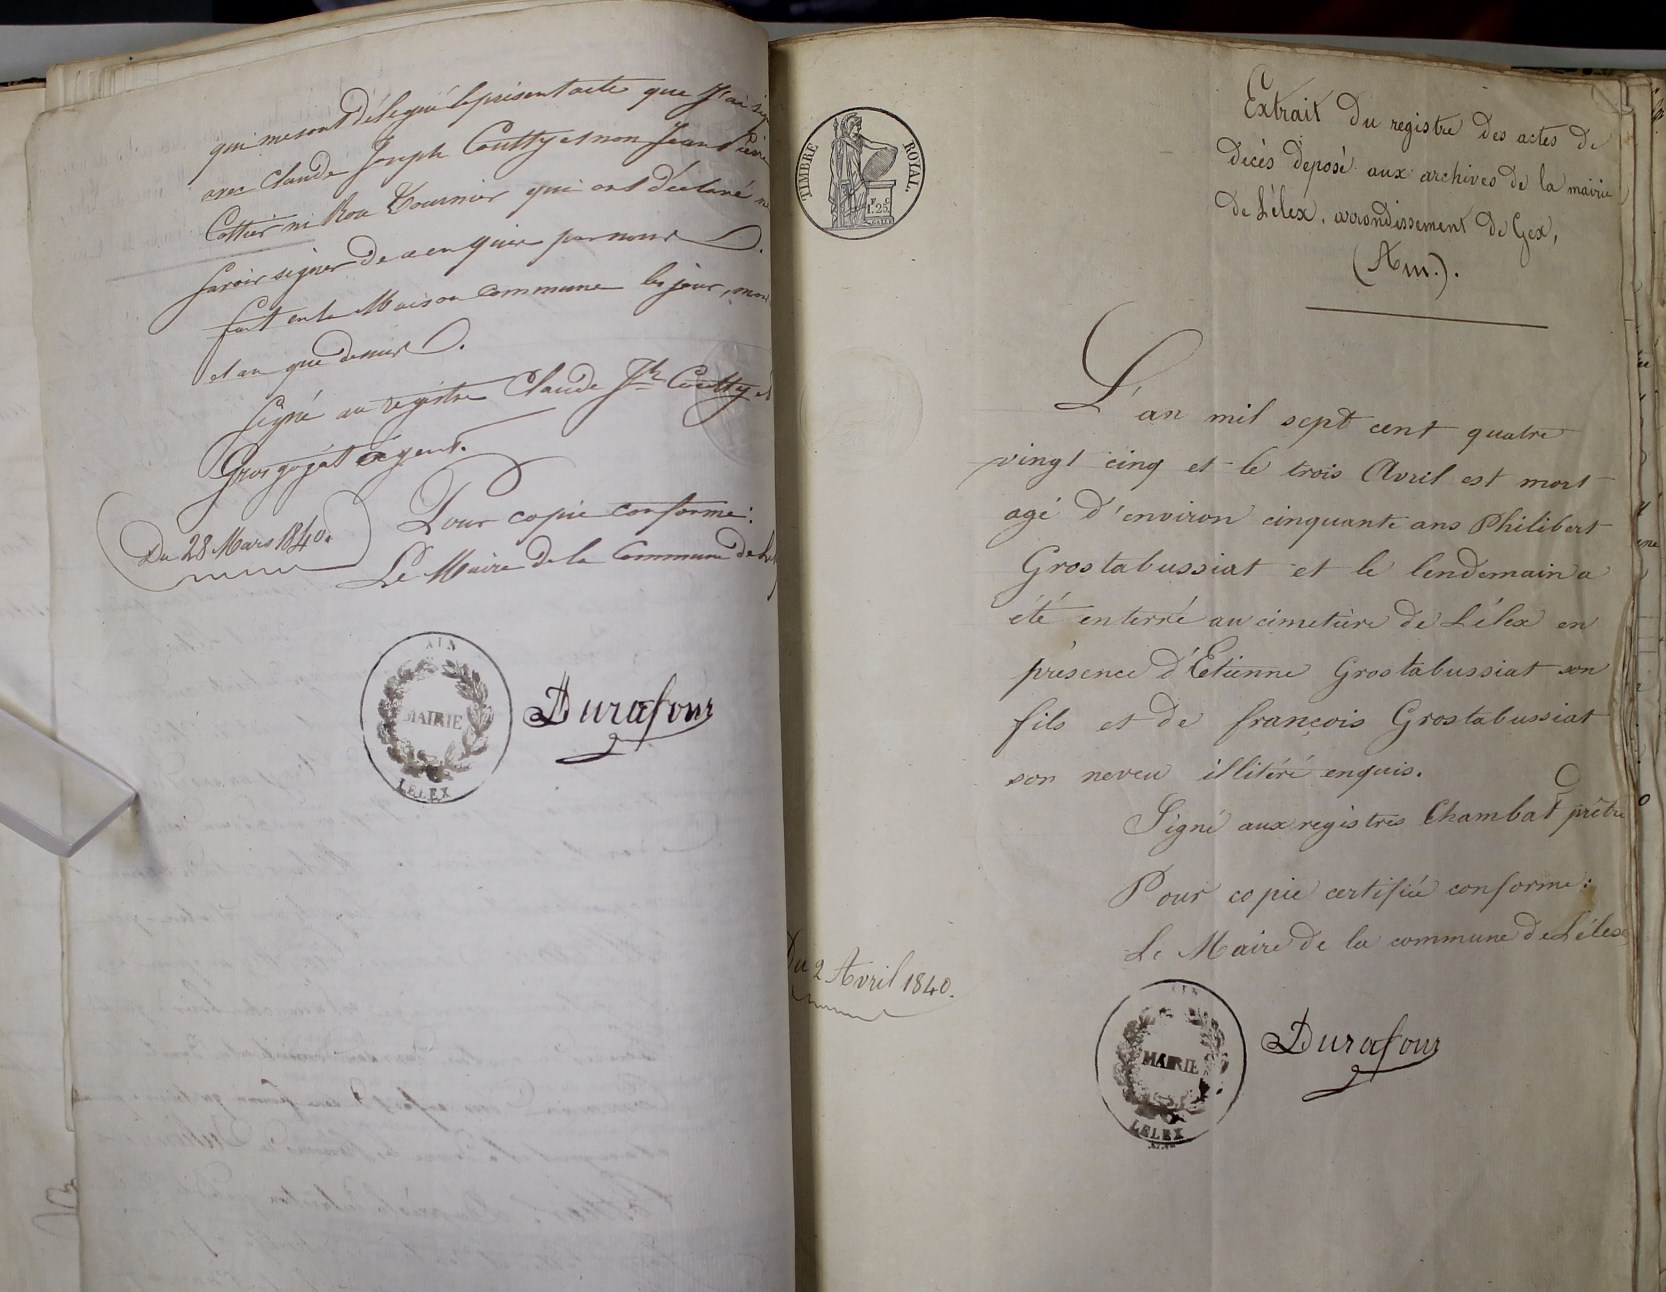 qui me sont délegué le présent acte que j'ai
avec Claude Joseph Coutty et non Jean Pierre
Cottier ni Rou Tournier qui ont déclaré
savoir signer de ce enquier par nous
fait en la Maison commune les jour, mois
et an que dessus.
Signé au registre Claude Jh Coutty et
Grosgojat Agent.
Pour copie conforme:
Du 28 Mars 1840.
Le Maire de la Commune de
AIN
MAIRIE
LELEX
Durafour
TIMBRE ROYAL.
F. C.
1.25.
Extrait du registre des actes de
decès deposé aux archives de la mairie
de Lélex, arrondissement de Gex,
(Ain.).
L'an mil sept cent quatre
vingt cinq et le trois Avril est mort
agé d'environ cinquante ans Philibert
Grostabussiat et le lendemain a
été enterré au cimetière de Lélex en
présence d'Etienne Grostabussiat son
fils et de françois Grostabussiat
son neveu illitéré enquis.
Signé aux registres Chambat prêtre
Pour copie certifiée conforme:
Le Maire de la commune de Lélex
Du 2 Avril 1840.
AIN
MAIRIE
LELEX
Durafour